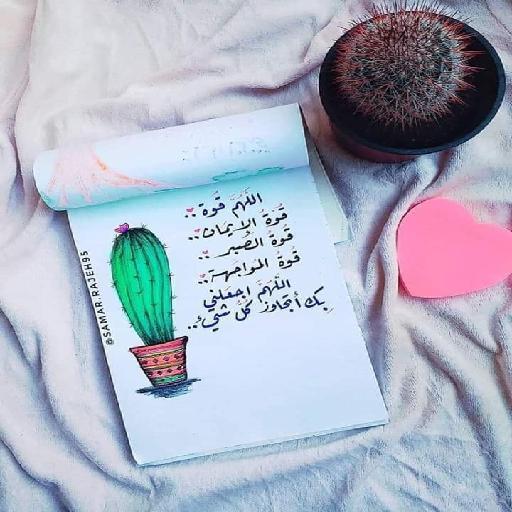 اللهم قوة..
قوة الايمان..
قوة الصبر..
قوة المواجهة..
اللهم اجعلني
بك أتجاوز كل شيء..
@SAMAR.RAJEH95